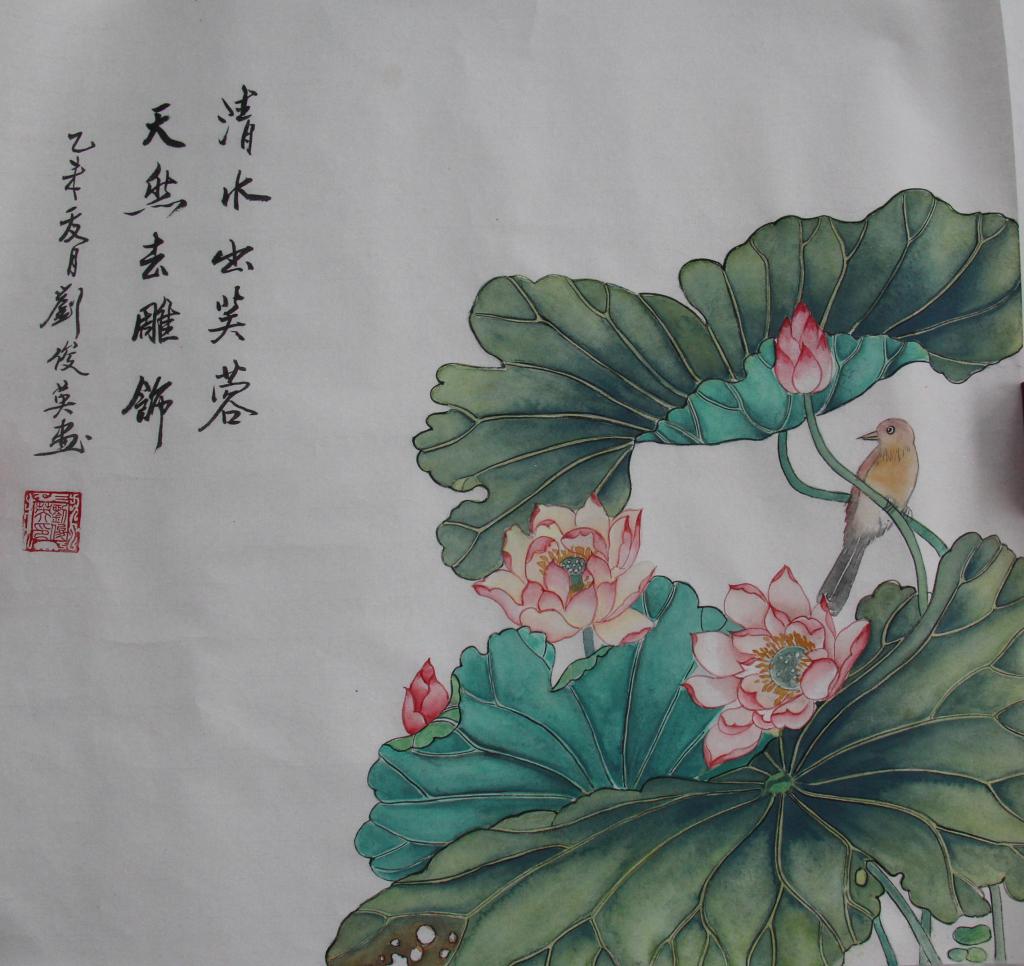 清水出芙蓉
天然去雕飾
乙未夏月劉俊英畫